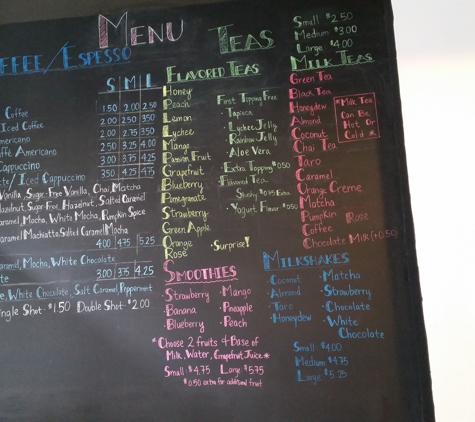 MENU
COFFEE/ESPRESSO
S M L
Coffee 1.50 2.00 2.50
Iced Coffee 2.00 2.50 3.50
Americano 2.00 2.75 3.50
Caffè Americano 2.50 3.25 4.00
Cappuccino 3.00 3.75 4.25
/Iced Cappuccino 3.50 4.25 4.75
Vanilla, Sugar-Free Vanilla, Chai, Matcha
Hazelnut, Sugar-Free Hazelnut, Salted Caramel
Caramel, Mocha, White Mocha, Pumpkin Spice
Caramel Machiatto, Salted Caramel Mocha
4.00 4.75 5.25
Caramel, Mocha, White Chocolate
3.00 3.75 4.25
White Chocolate, Salt Caramel, Peppermint
Single Shot $1.50 Double Shot $2.00
TEAS
FLAVORED TEAS
Honey
Peach
Lemon
Lychee
Mango
Passion Fruit
Grapefruit
Blueberry
Pomegranate
Strawberry
Green Apple
Orange
Rose
First Topping Free
· Tapioca
· Lychee Jelly
· Rainbow Jelly
· Aloe Vera
· Extra Topping $0.50
· Flavored Tea
Slushy $0.75 Extra
· Yogurt Flavor $0.50
· Surprise!
Small $2.50
Medium $3.00
Large $4.00
MILK TEAS
Green Tea
Black Tea
Honeydew
Almond
Coconut
Chai Tea
Taro
Caramel
Orange Creme
Matcha
Pumpkin Rose
Coffee
Chocolate Milk (+0.50)
*Milk Tea
Can Be
Hot Or
Cold*
SMOOTHIES
· Strawberry · Mango
· Banana · Pineapple
· Blueberry · Peach
*Choose 2 fruits & Base of
Milk, Water, Grapefruit Juice*
Small $4.75 Large $5.75
*$0.50 extra for additional fruit
MILKSHAKES
· Coconut · Matcha
· Almond · Strawberry
· Taro · Chocolate
· Honeydew · White
Chocolate
Small $4.00
Medium $4.75
Large $5.25